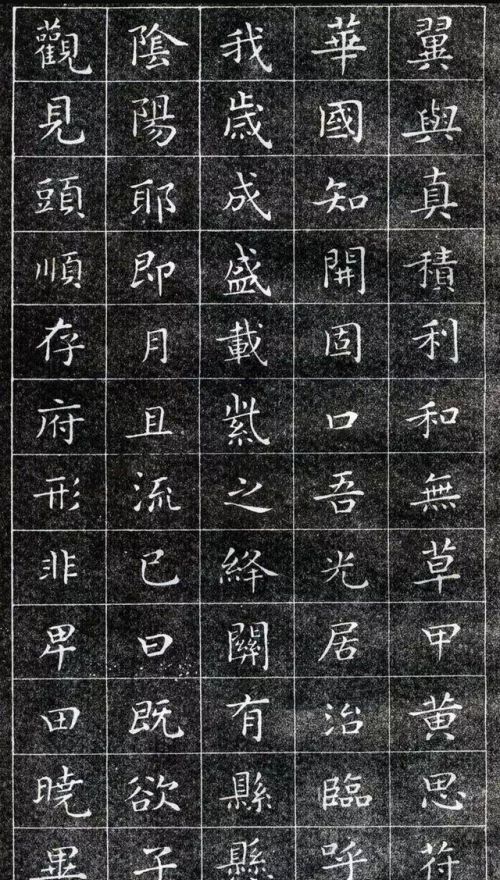 翼與真積利和無草甲黄思苻
華國知開固口吾光居治臨呼
我歲成盛載紫之絳關有縣縣
陰陽耶即月且流已曰既欲子
觀見頭順存府形非卑田曉